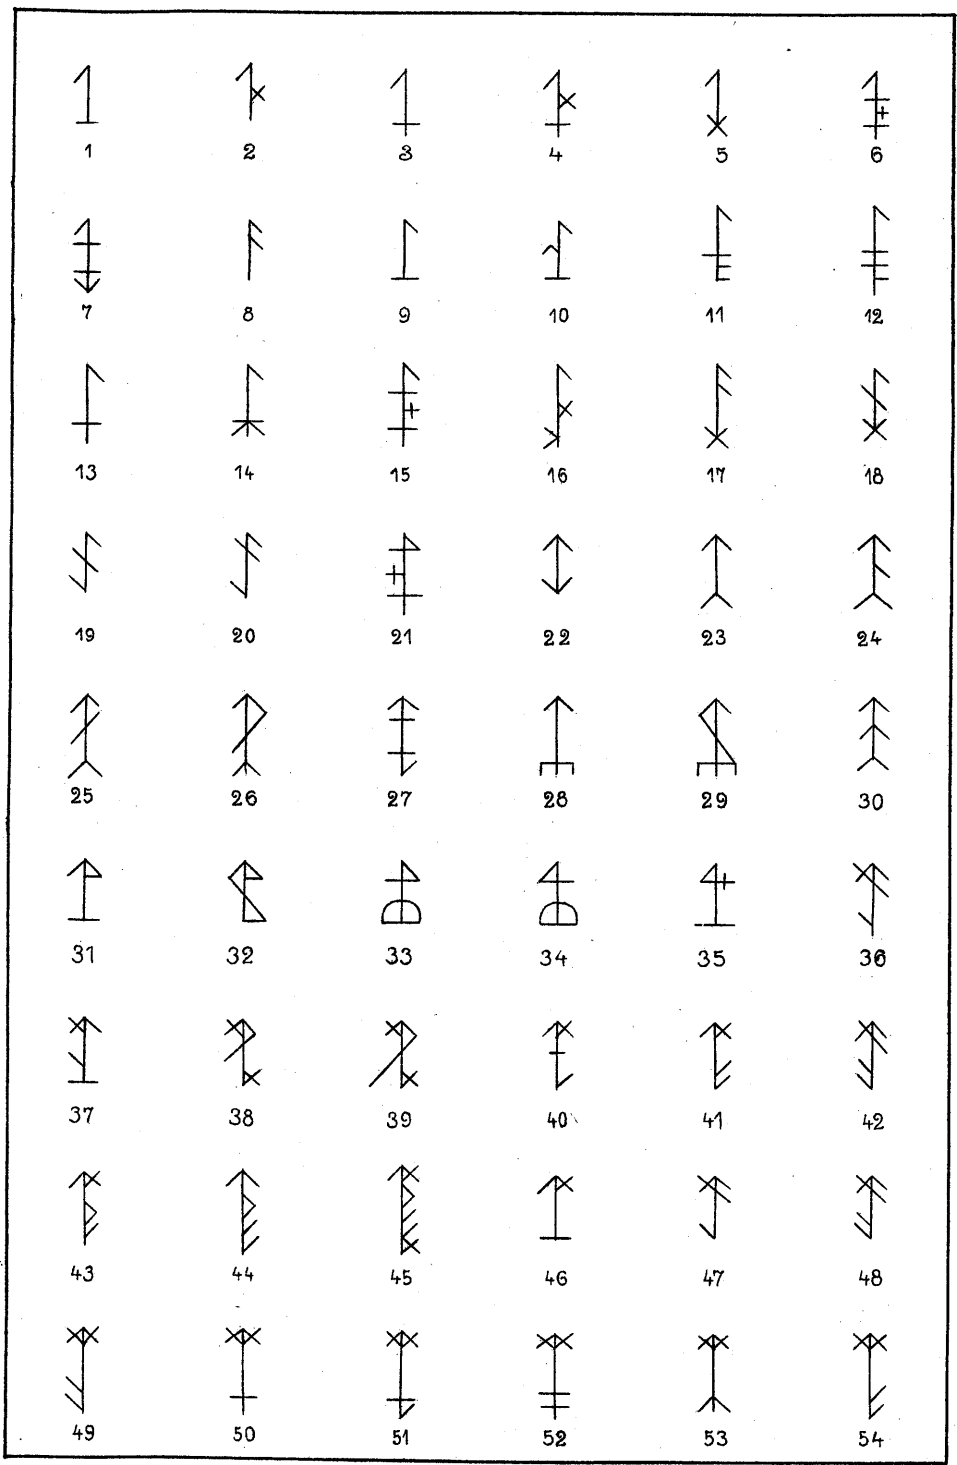 1 2 3 4 5 6
7 8 9 10 11 12
13 14 15 16 17 18
19 20 21 22 23 24
25 26 27 28 29 30
31 32 33 34 35 36
37 38 39 40 41 42
43 44 45 46 47 48
49 50 51 52 53 54